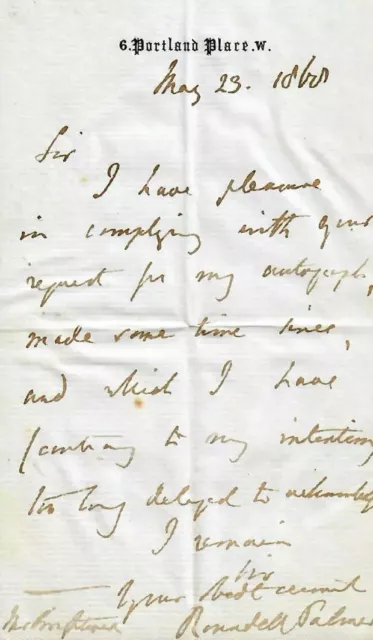 6. Portland Place. W.
May 23. 1868
Sir
I have pleasure
in complying with your
request for my autograph,
made some time since,
and which I have
(contrary to my intention)
too long delayed to acknowledge
I remain
Sir
Your obedt servant
Roundell Palmer